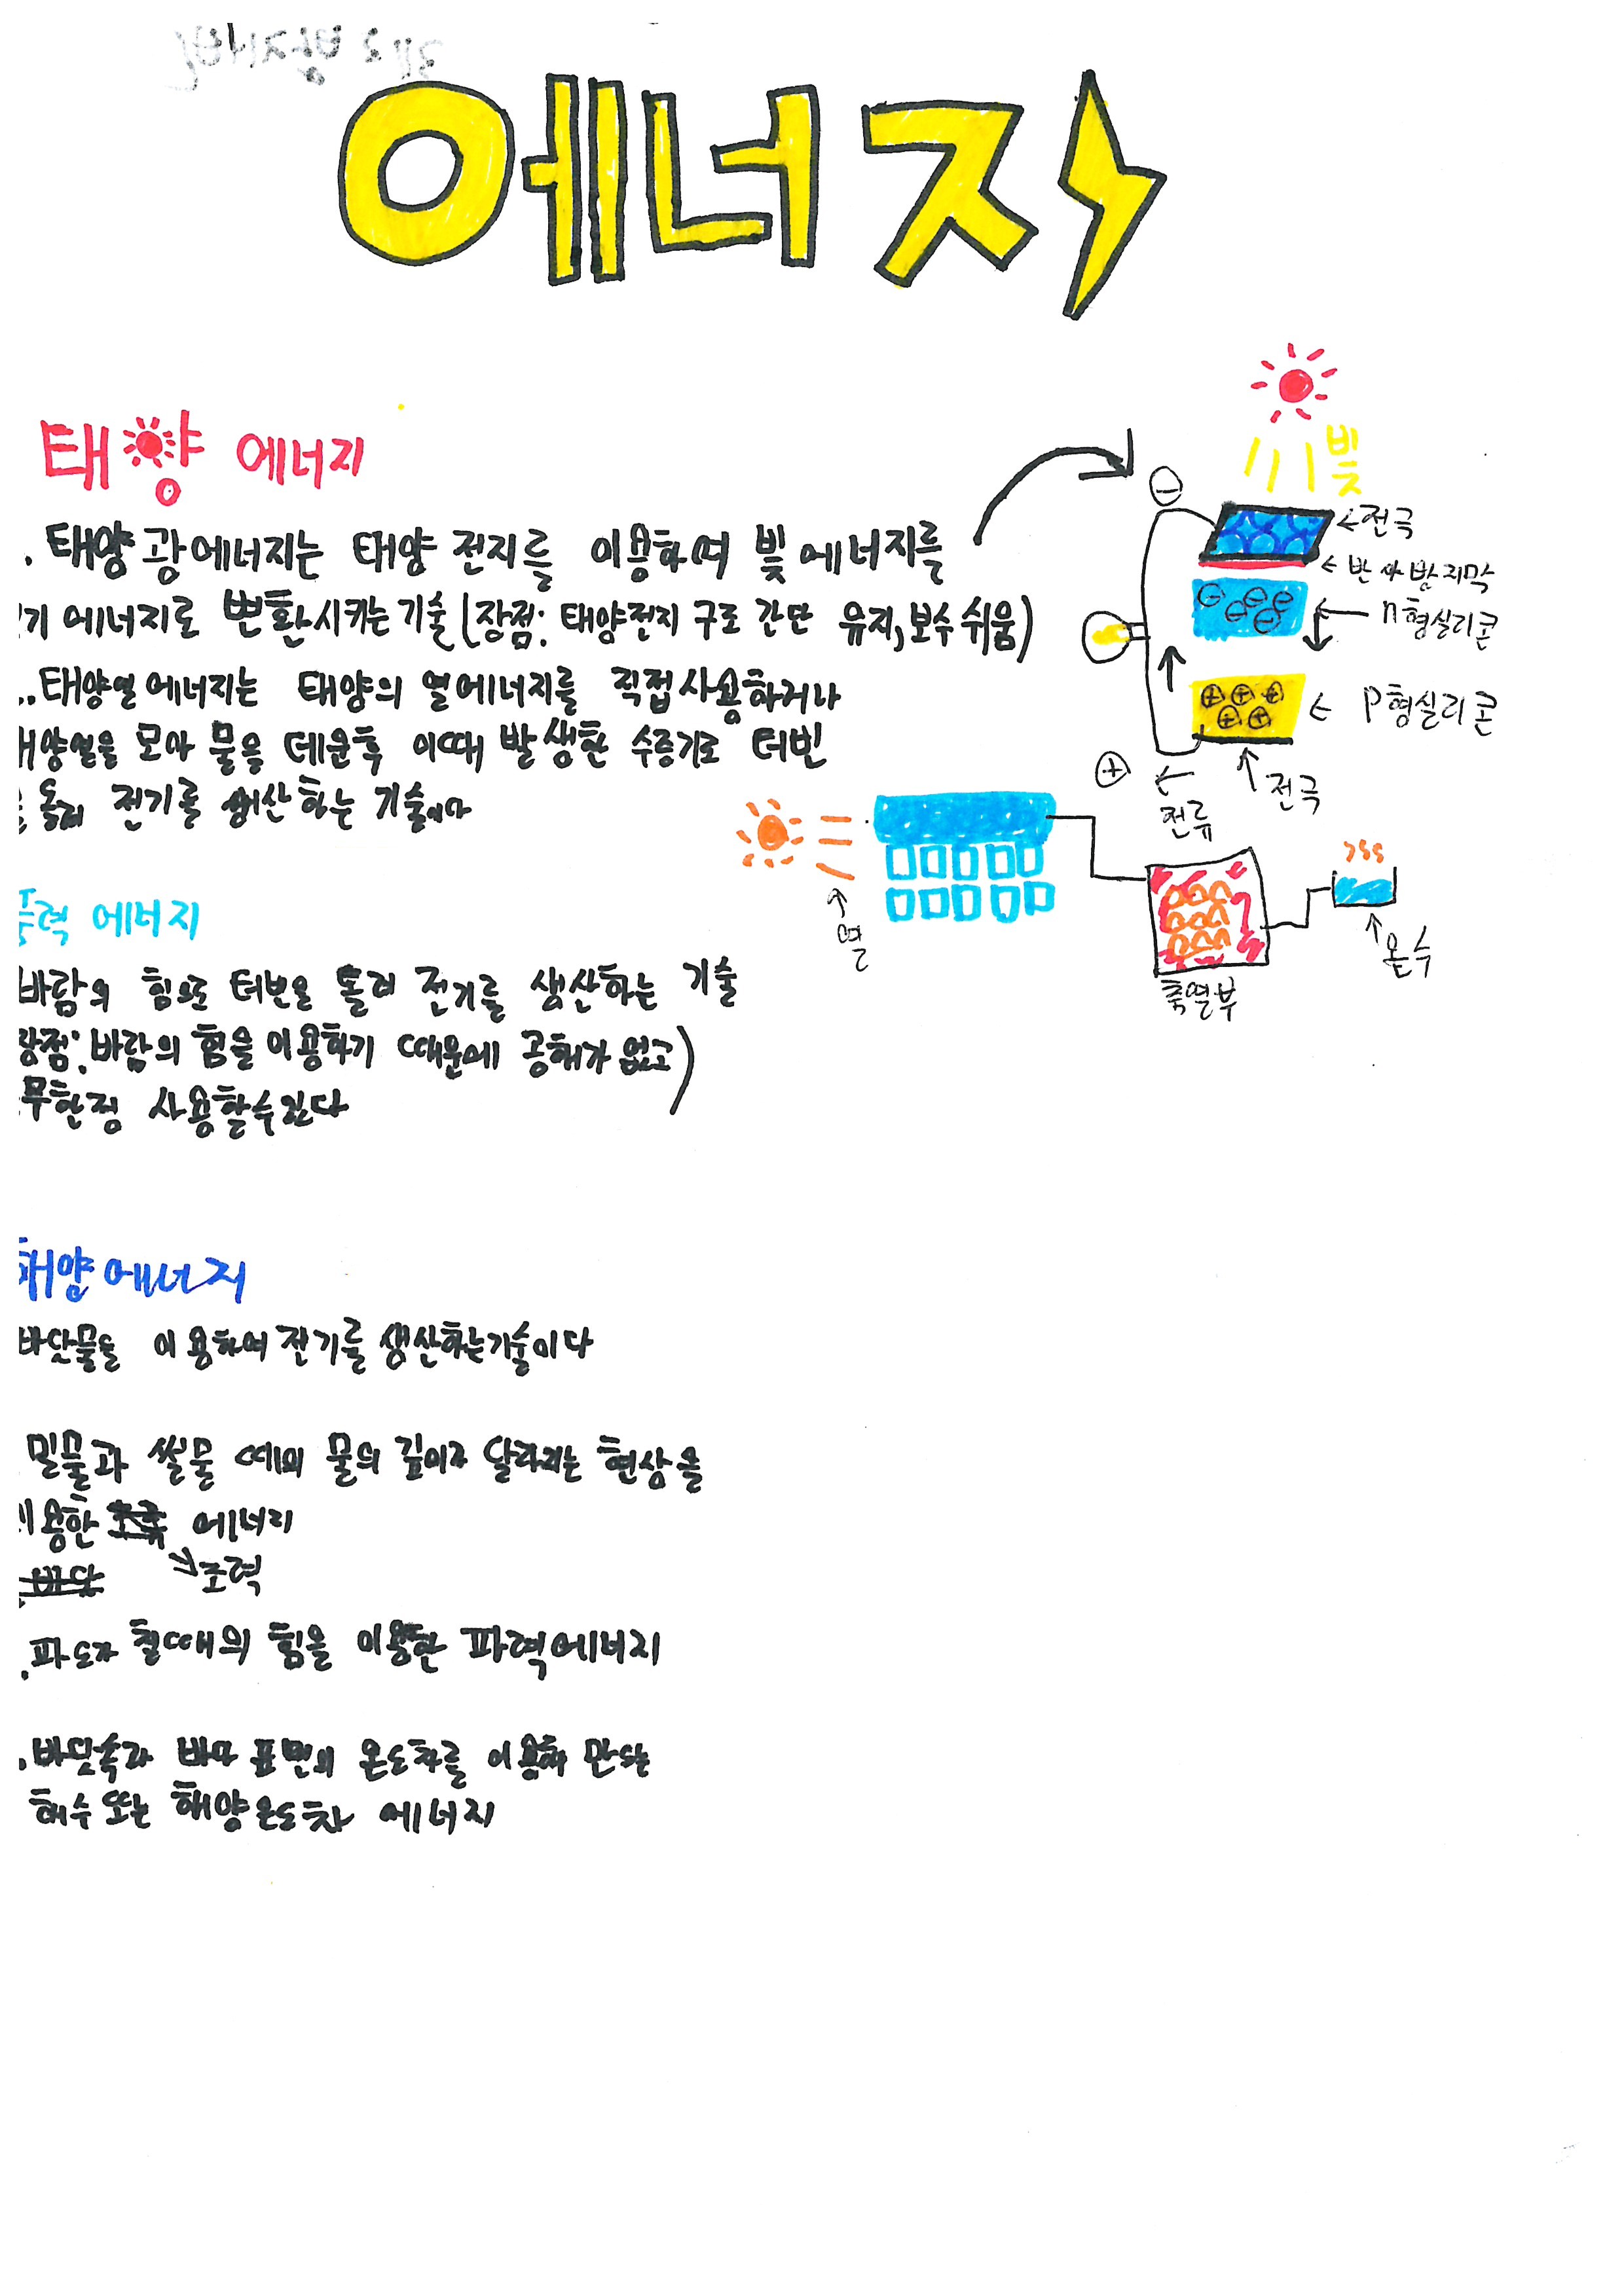 에너지
태양 에너지
. 태양광에너지는 태양 전지를 이용하여 빛에너지를
기 에너지로 변환시키는 기술(장점: 태양전지 구조 간단 유지,보수 쉬움)
.. 태양열에너지는 태양의 열에너지를 직접사용하거나
태양열을 모아 물을 데운후 이때 발생한 수증기로 터빈
을 돌려 전기를 생산하는 기술이다
빛
전극
반사방지막
n형실리콘
P형실리콘
전극
전류
열
축열부
온수
풍력 에너지
바람의 힘으로 터빈을 돌려 전기를 생산하는 기술
장점: 바람의 힘을 이용하기 때문에 공해가 없고)
무한정 사용할수있다
해양에너지
바닷물을 이용하여 전기를 생산하는기술이다
밀물과 썰물 때의 물의 깊이가 달라지는 현상을
이용한 에너지
조력
.파도가 칠때의 힘을 이용한 파력에너지
.바닷속과 바다 표면의 온도차를 이용해 만드는
해수 또는 해양온도차 에너지